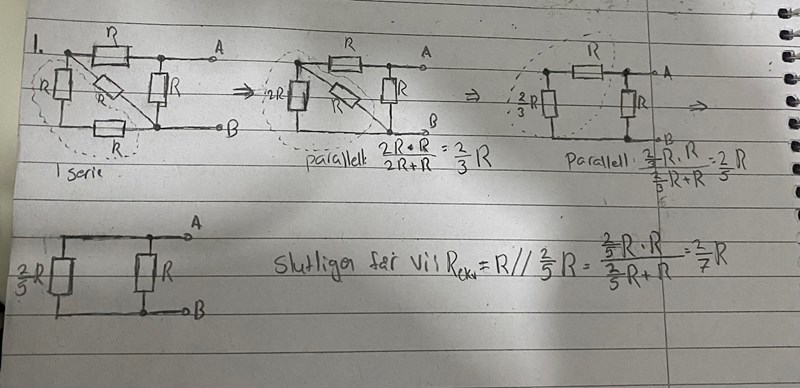 1.
R
A
R
R
R
B
R
I serie
⇒
R
A
2R
R
R
B
parallell: 2R·R / 2R+R = 2/3 R
⇒
R
A
2/3 R
R
B
Parallell: 2/3 R·R / 2/3 R+R = 2/5 R
⇒
A
2/5 R
R
B
Slutligen får vi: R ekv = R // 2/5 R = 2/5 R·R / 2/5 R+R = 2/7 R